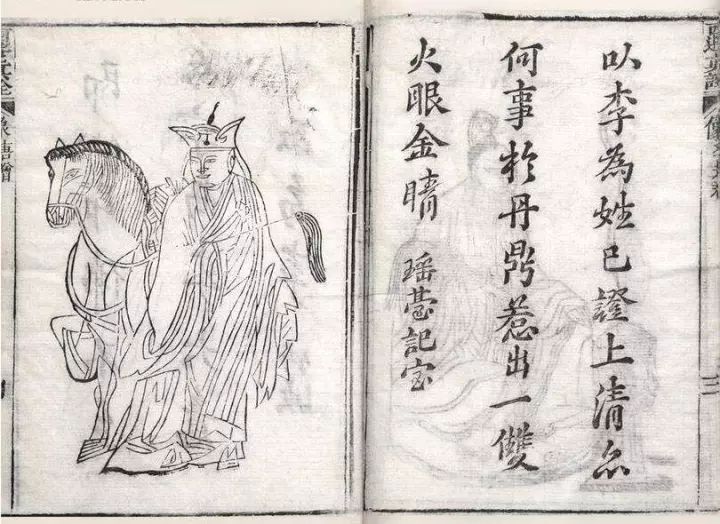 以李為姓已證上清
何事於丹鼎惹出一雙
火眼金睛
瑤臺記室